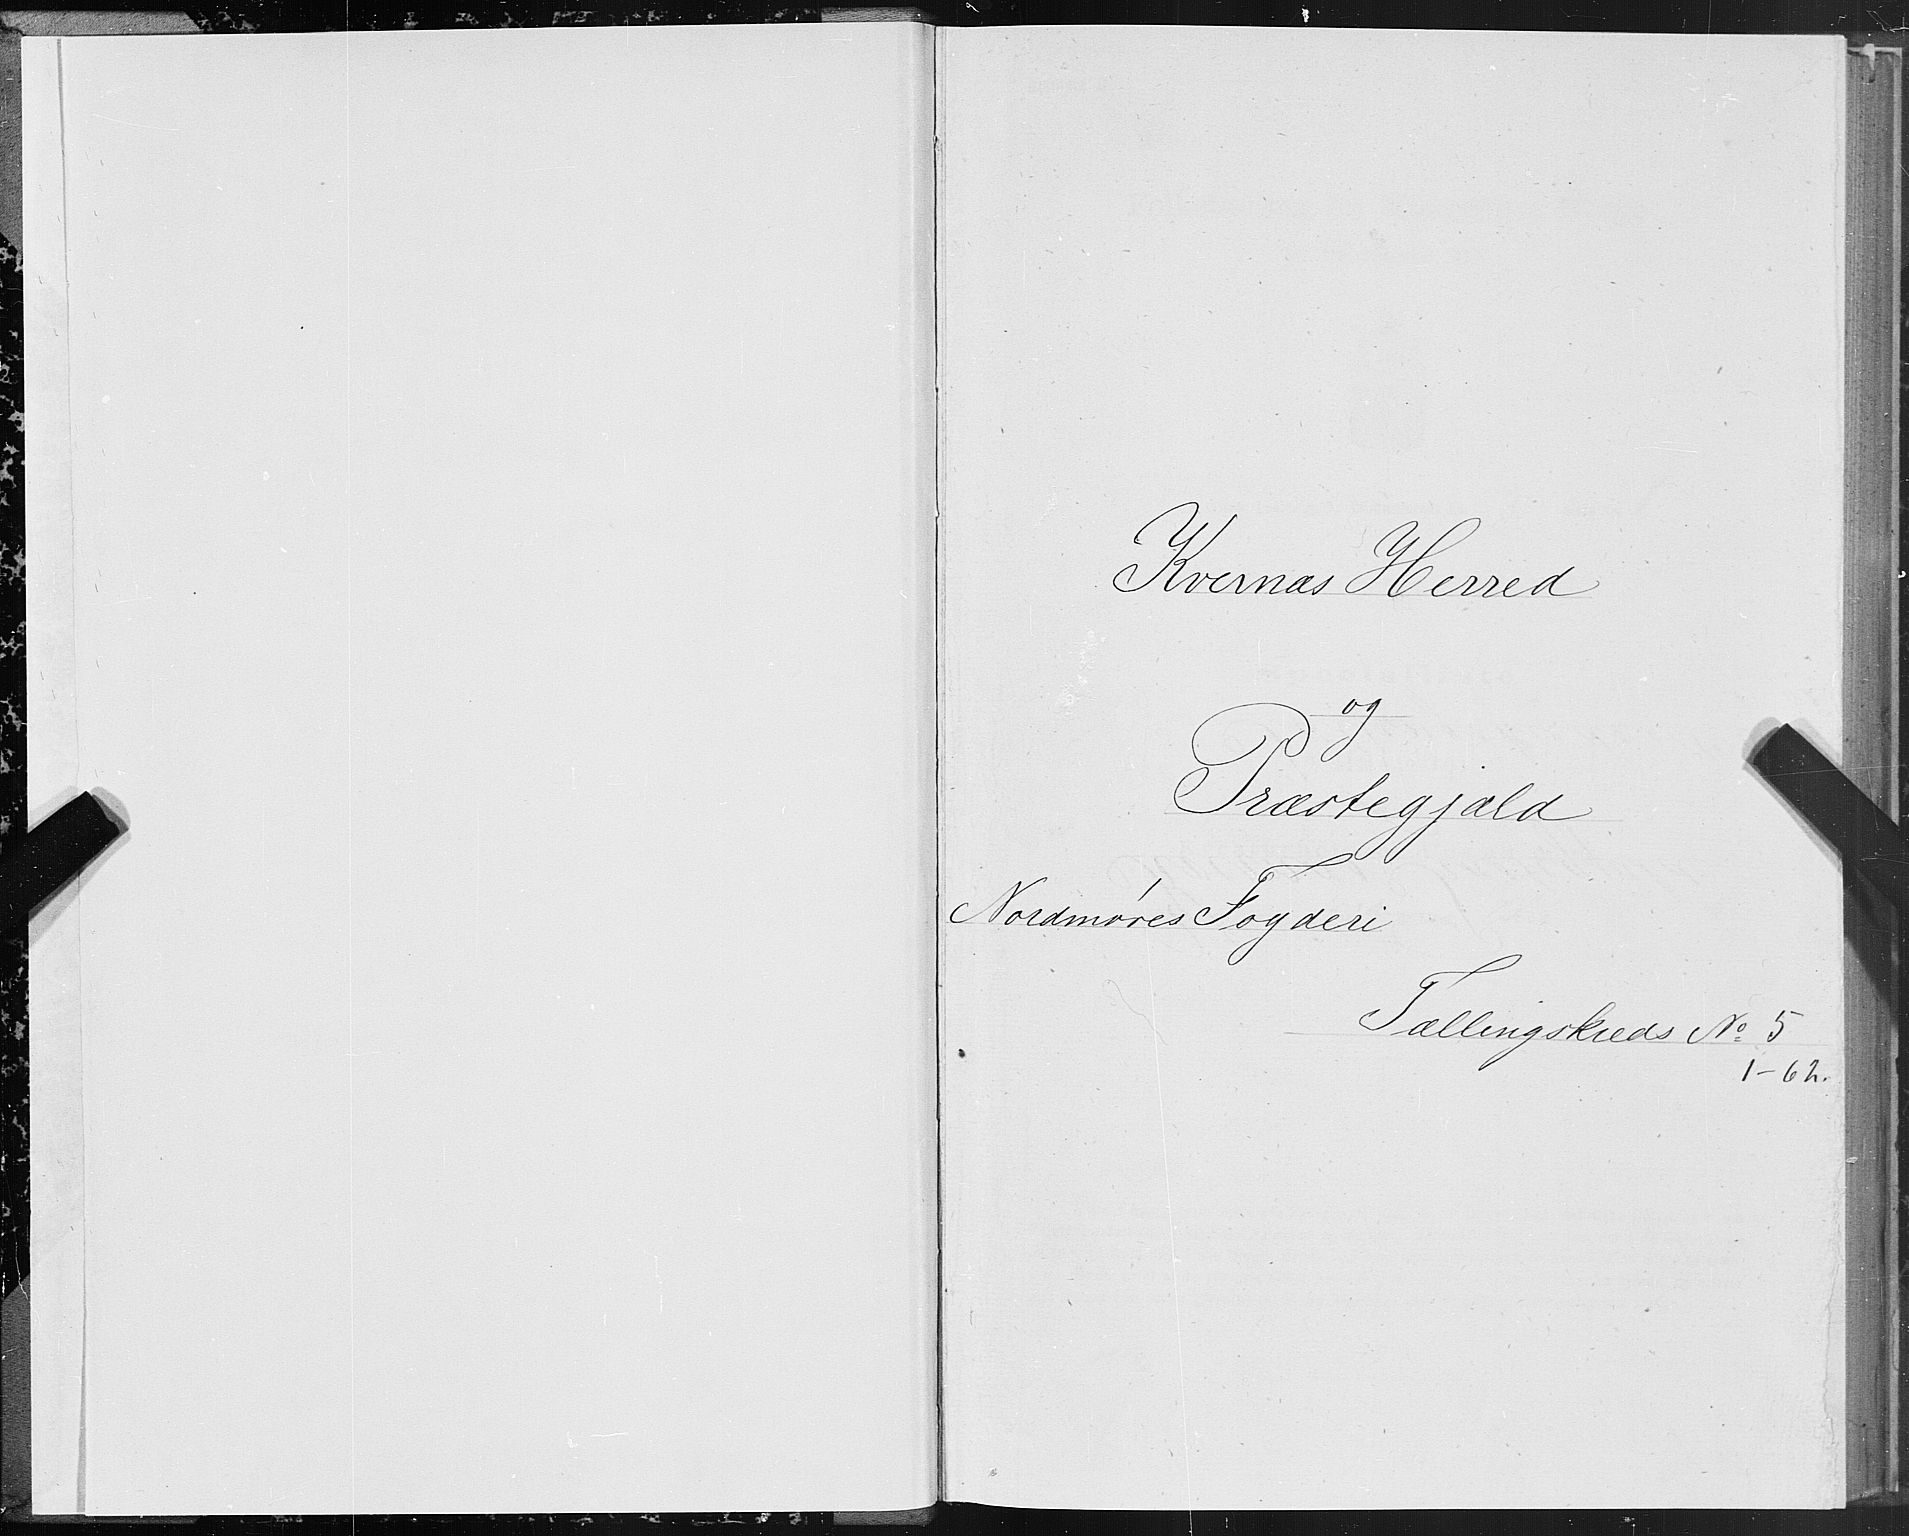 Kvernæs Herred
og
Præstegjæld
Nordmøres Fogderi
Tællingskreds No 5
1-62.